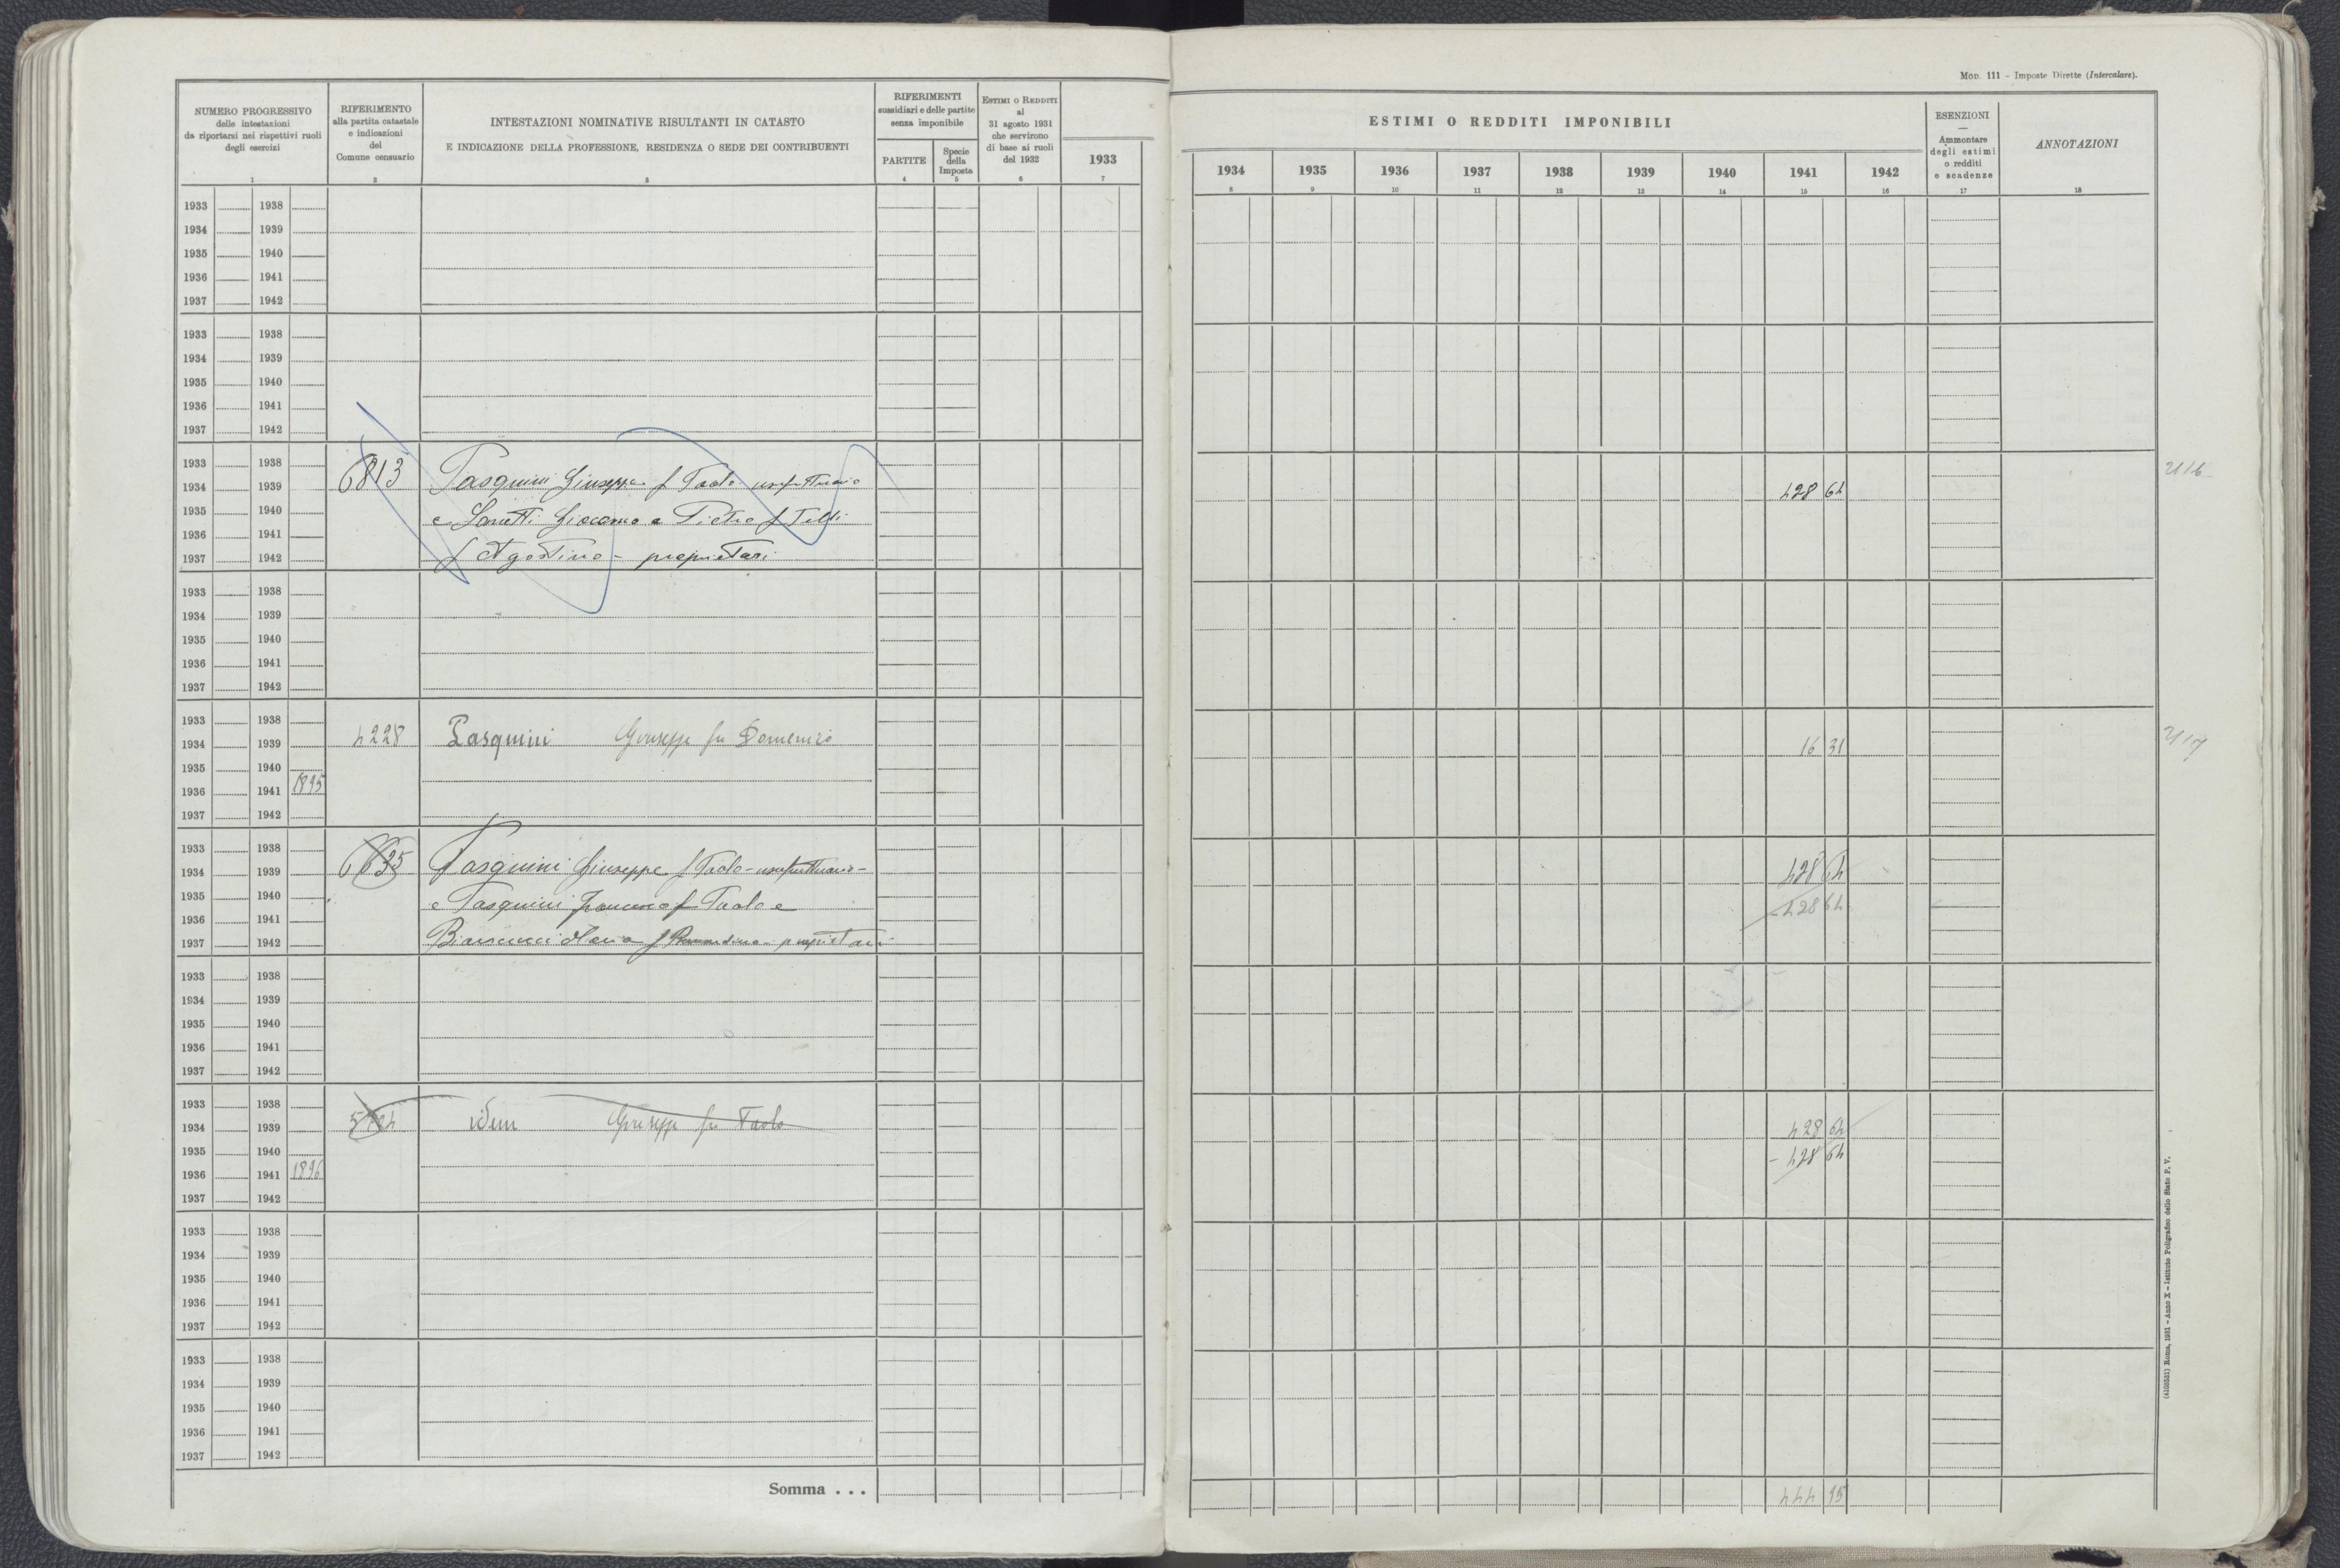 Mod. 111 - Imposte Dirette (Intercalare).
NUMERO PROGRESSIVO
delle intestazioni
da riportarsi nei rispettivi ruoli
degli esercizi
1
RIFERIMENTO
alla partita catastale
e indicazioni
del
Comune censuario
2
INTESTAZIONI NOMINATIVE RISULTANTI IN CATASTO
E INDICAZIONE DELLA PROFESSIONE, RESIDENZA O SEDE DEI CONTRIBUENTI
3
RIFERIMENTI
sussidiari e delle partite
senza imponibile
PARTITE
4
Specie
della
Imposta
5
Estimi o Redditi
al
31 agosto 1931
che servirono
di base ai ruoli
del 1932
6
1933
7
ESTIMI O REDDITI IMPONIBILI
1934 1935 1936 1937 1938 1939 1940 1941 1942
8 9 10 11 12 13 14 15 16
ESENZIONI
—
Ammontare
degli estimi
o redditi
e scadenze
17
ANNOTAZIONI
18
1933 1938
1934 1939
1935 1940
1936 1941
1937 1942
1933 1938
1934 1939
1935 1940
1936 1941
1937 1942
1933 1938 6813 Pasquini Giuseppe f Paolo usufruttuario 2116
1934 1939 428 64
1935 1940 e Giacomo e Pietro f
1936 1941
1937 1942 f Agostino - proprietari
1933 1938
1934 1939
1935 1940
1936 1941
1937 1942
1933 1938
1934 1939 4228 Pasquini Giuseppe fu Domenico 16 31 2117
1935 1940
1936 1941 1895
1937 1942
1933 1938
1934 1939 6635 Pasquini Giuseppe f Paolo - usufruttuario - 428 64
1935 1940 e Pasquini f Paolo e - 428 64
1936 1941
1937 1942 Maria f proprietari
1933 1938
1934 1939
1935 1940
1936 1941
1937 1942
1933 1938
1934 1939 idem Giuseppe fu Paolo 428 64
1935 1940 - 428 64
1936 1941 1896
1937 1942
1933 1938
1934 1939
1935 1940
1936 1941
1937 1942
1933 1938
1934 1939
1935 1940
1936 1941
1937 1942
Somma . . . 444 95
(4108551) Roma, 1931 - Anno X - Istituto Poligrafico dello Stato P. V.